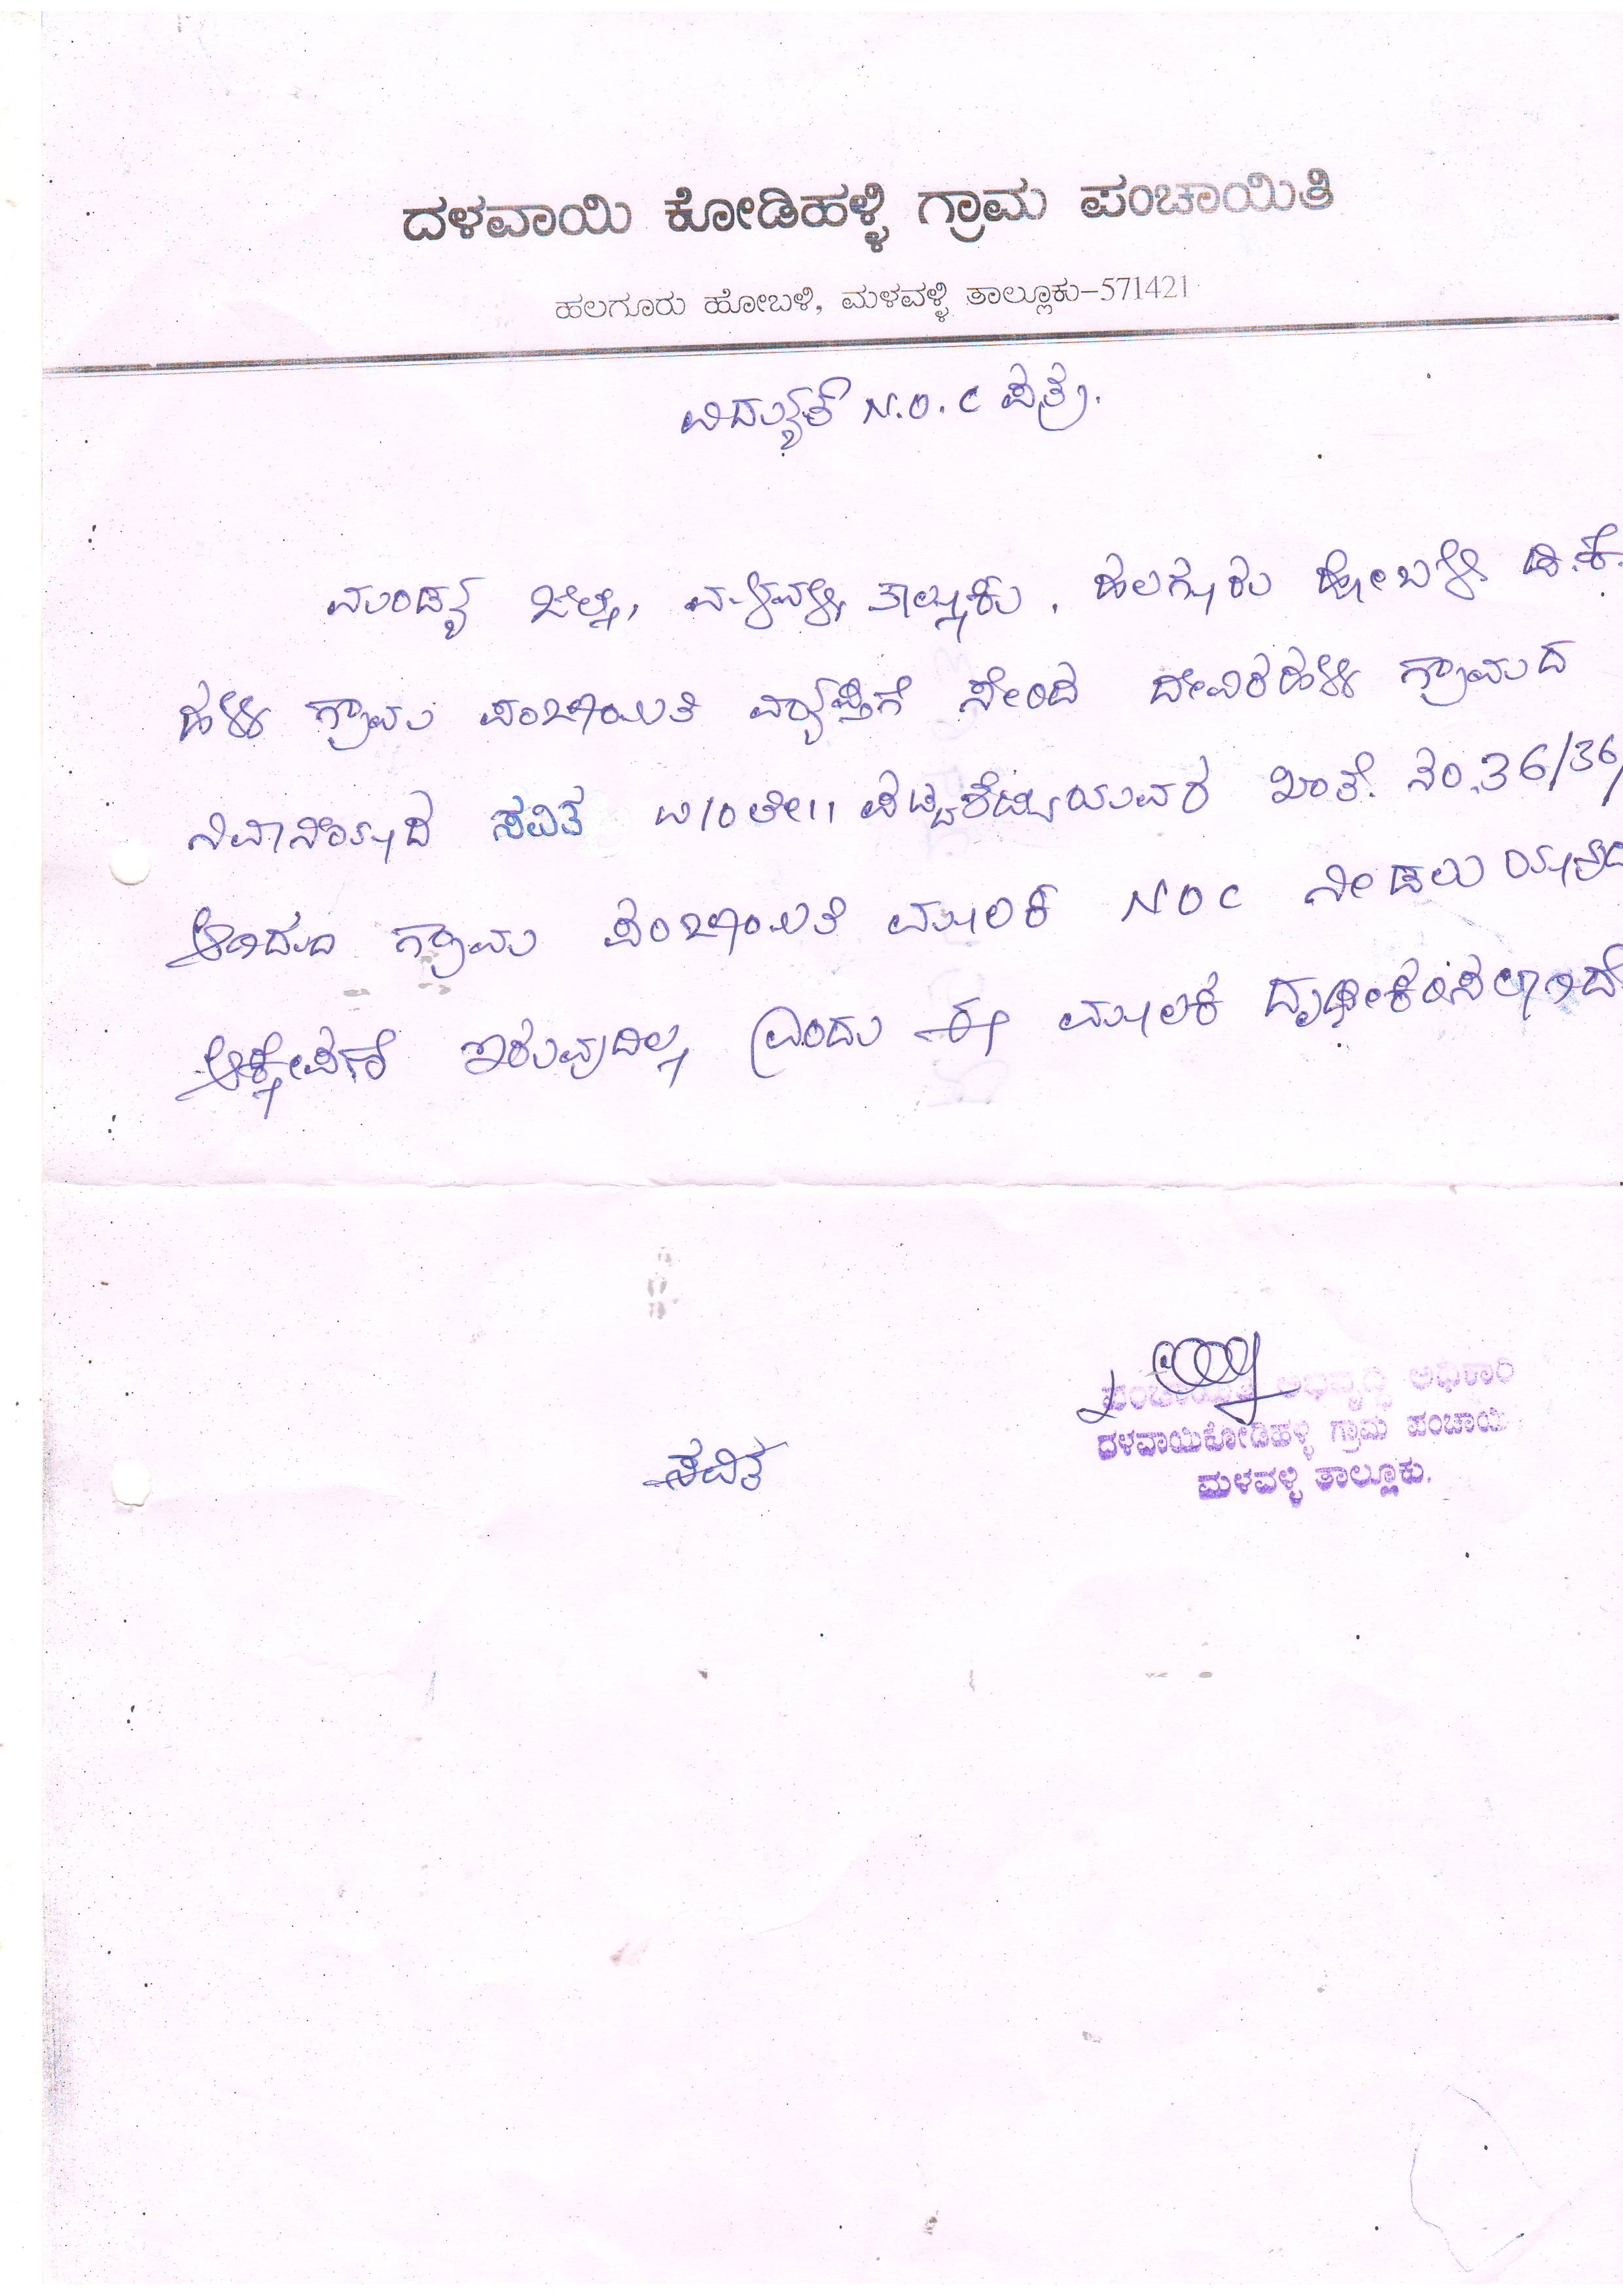 ದಳವಾಯಿ ಕೋಡಿಹಳ್ಳಿ ಗ್ರಾಮ ಪಂಚಾಯಿತಿ
ಹಲಗೂರು ಹೋಬಳಿ, ಮಳವಳ್ಳಿ ತಾಲ್ಲೂಕು-571421
ವಿದ್ಯುತ್ N.O.C ಪತ್ರ.
ಮಂಡ್ಯ ಜಿಲ್ಲೆ, ಮಳವಳ್ಳಿ ತಾಲ್ಲೂಕು, ಹಲಗೂರು ಹೋಬಳಿ ಡಿ.ಕೆ.
ಹಳ್ಳಿ ಗ್ರಾಮ ಪಂಚಾಯಿತಿ ವ್ಯಾಪ್ತಿಗೆ ಸೇರಿದ ದೇವಿರಹಳ್ಳಿ ಗ್ರಾಮದ
ನಿವಾಸಿಯಾದ ಸವಿತ W/O ಲೇ|| ಪುಟ್ಟಶೆಟ್ಟಿಯವರ ಖಾತೆ ನಂ.36/36/
ಆಗಿದ್ದು ಗ್ರಾಮ ಪಂಚಾಯಿತಿ ಮೂಲಕ NOC ನೀಡಲು
ಆಕ್ಷೇಪಣೆ ಇರುವುದಿಲ್ಲ ಎಂದು ಈ ಮೂಲಕ ದೃಢೀಕರಿಸಲಾಗಿದೆ
ಪಂಚಾಯಿತಿ ಅಭಿವೃದ್ಧಿ ಅಧಿಕಾರಿ
ದಳವಾಯಿಕೋಡಿಹಳ್ಳಿ ಗ್ರಾಮ ಪಂಚಾಯಿ
ಸವಿತ
ಮಳವಳ್ಳಿ ತಾಲ್ಲೂಕು.